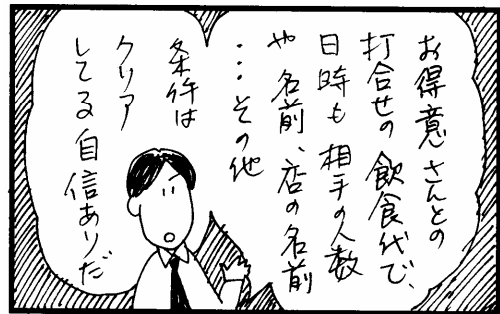 お得意さんとの
打合せの飲食代で、
日時も相手の人数
や名前、店の名前
・・・その他
条件は
クリア
してる自信ありだ